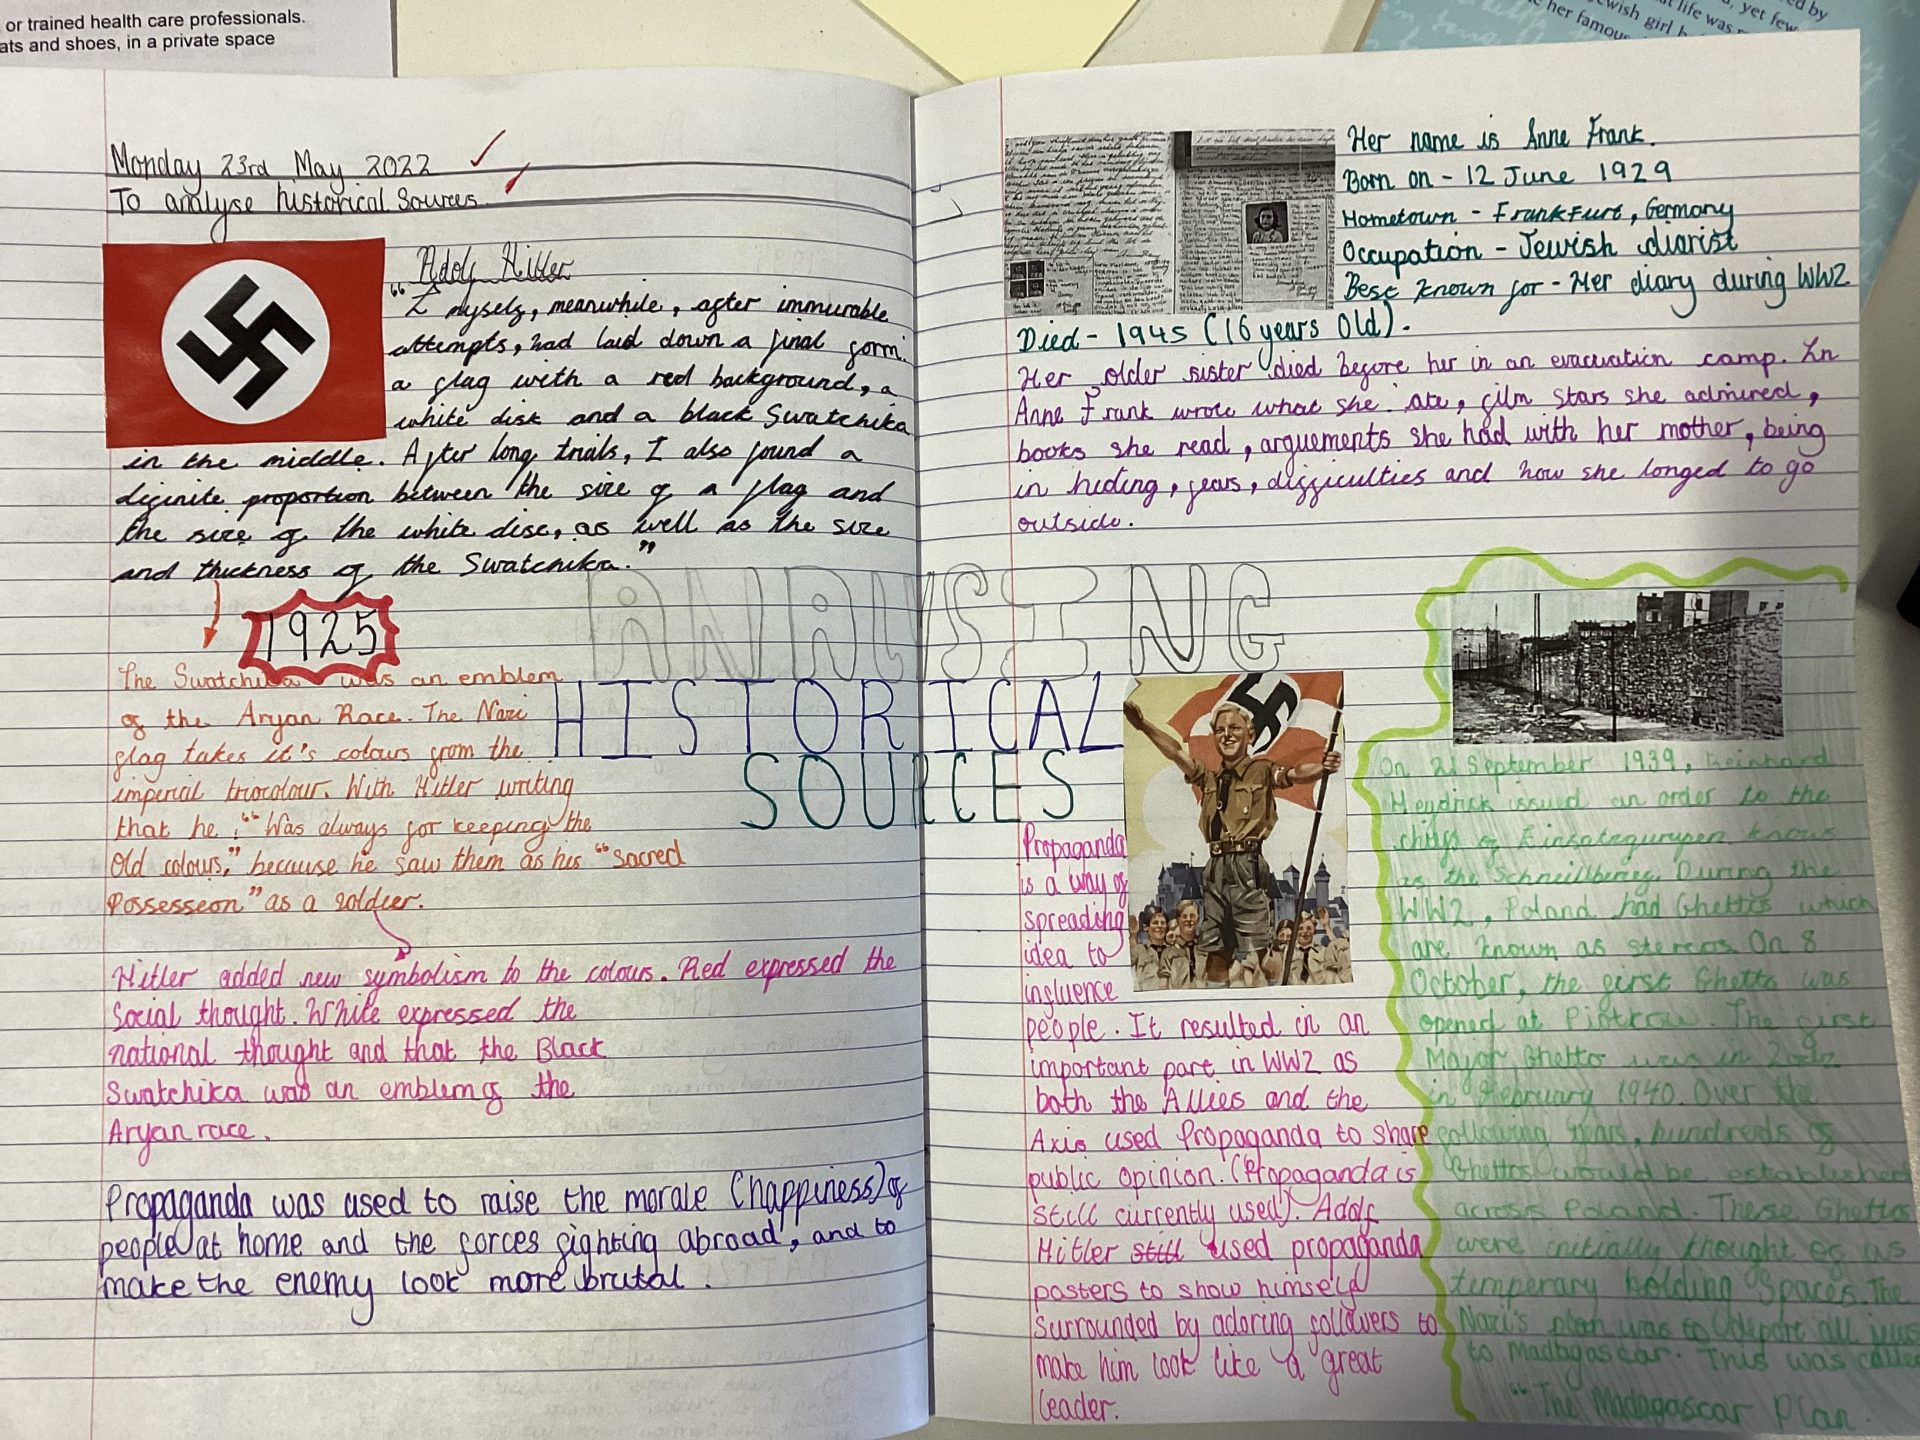 or trained health care professionals.
ats and shoes, in a private space
Monday 23rd May 2022
To analyse historical Sources
Adolf Hitler
"I myself, meanwhile, after immurable
attempts, had laid down a final form;
a flag with a red background, a
white disk and a black Swatchika
in the middle. After long trials, I also found a
definite proportion between the size of a flag and
the size of the white disc, as well as the size
and thickness of the Swatchika."
1925
The Swatchika was an emblem
of the Aryan Race. The Nazi
flag takes it's colours from the
imperial triocolour. With Hitler writing
that he "Was always for keeping the
old colours," because he saw them as his "sacred
Possesseon" as a soldier.
Hitler added new symbolism to the colours. Red expressed the
Social thought. White expressed the
national thought and that the Black
Swatchika was an emblem of the
Aryan race.
Propaganda was used to raise the morale (happiness) of
people at home and the forces fighting abroad, and to
make the enemy look more brutal.
ANALYSING
HISTORICAL
SOURCES
Her name is Anne Frank.
Born on - 12 June 1929
Hometown - Frankfurt, Germany
Occupation - Jewish diarist
Best known for - Her diary during WW2
Died - 1945 (16 years Old).
Her older sister died before her in an evacuation camp. In
Anne Frank wrote what she ate, film stars she admired,
books she read, arguements she had with her mother, being
in hiding, fears, difficulties and how she longed to go
outside.
Propaganda
is a way of
spreading
idea to
influence
people. It resulted in an
important part in WW2 as
both the Allies and the
Axis used Propaganda to share
public opinion. (Propaganda is
still currently used). Adolf
Hitler still used propaganda
posters to show himself
surrounded by adoring followers to
make him look like a great
leader.
On 21 September 1939, Reinhard
Heydrick issued an order to the
chiefs of Einsatzgurypen known
as the During the
WW2, Poland had Ghettos which
are known as On 8
October, the first Ghetto was
opened at Piotrkow. The first
Major Ghetto was in
in February 1940. Over the
following years, hundreds of
Ghettos would be established
across Poland. These Ghettos
were initially thought of as
temporary holding Spaces. The
Nazi's plan was to deport all jews
to Madagascar. This was called
"The Madagascar Plan.